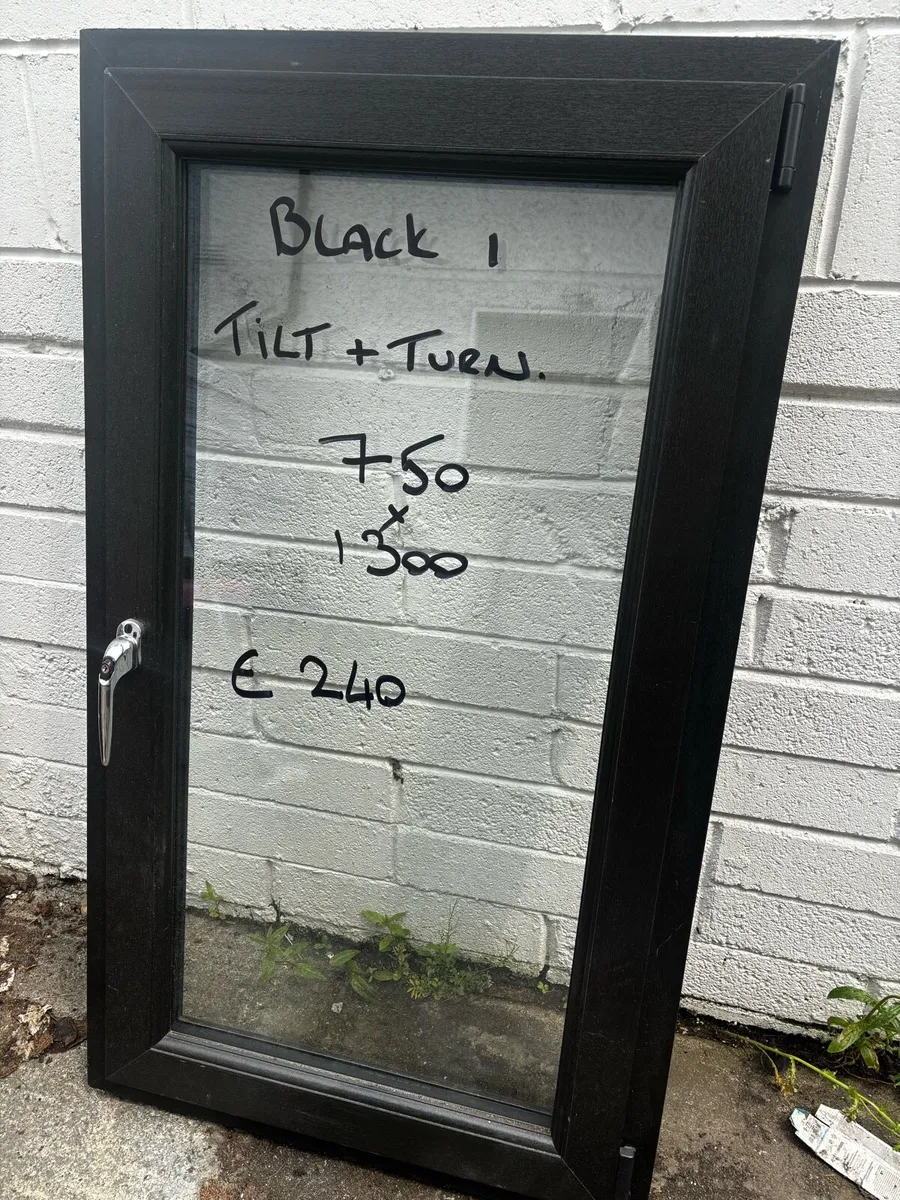 BLACK 1
TILT + TURN.
750
x
1300
€ 240